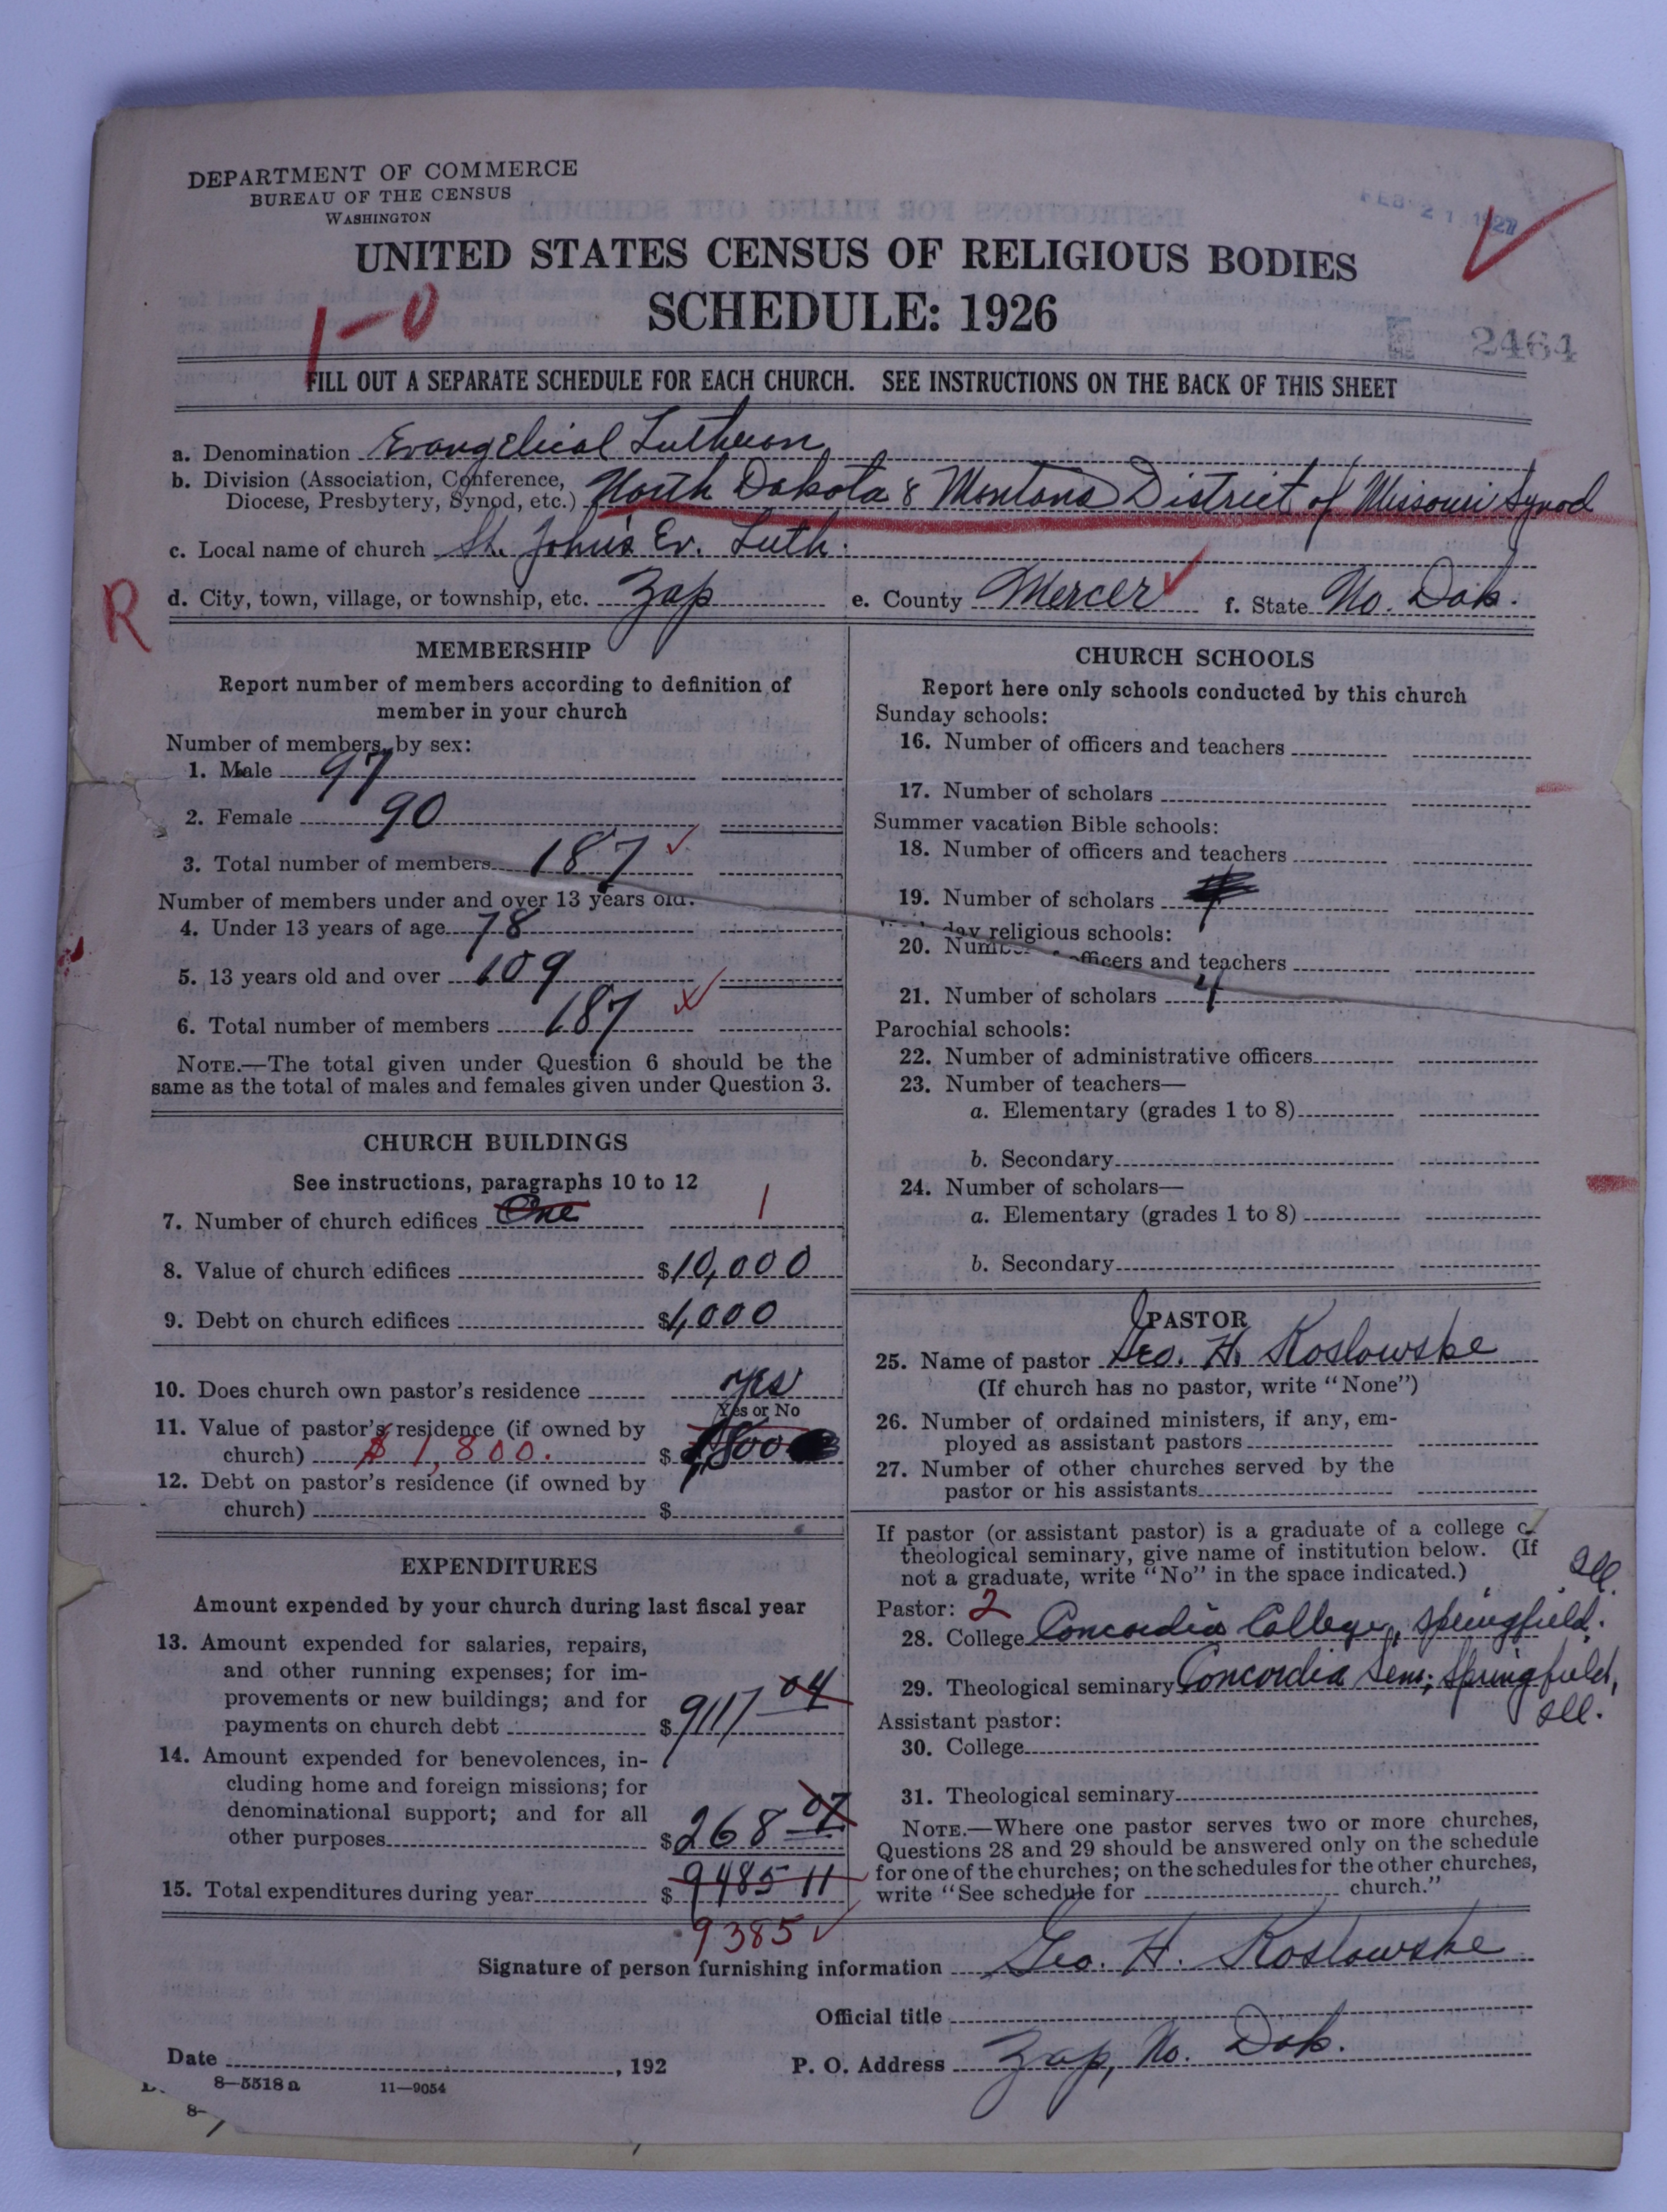 DEPARTMENT OF COMMERCE
BUREAU OF THE CENSUS
WASHINGTON
FEB 21 1927
UNITED STATES CENSUS OF RELIGIOUS BODIES
SCHEDULE: 1926
1-0
2464
FILL OUT A SEPARATE SCHEDULE FOR EACH CHURCH. SEE INSTRUCTIONS ON THE BACK OF THIS SHEET
a. Denomination Evangelical Lutheran
b. Division (Association, Conference,
Diocese, Presbytery, Synod, etc.) North Dakota & Montana District of Missouri Synod
c. Local name of church St. John's Ev. Luth.
R
d. City, town, village, or township, etc. Zap e. County Mercer f. State No. Dak.
MEMBERSHIP
Report number of members according to definition of
member in your church
Number of members, by sex:
1. Male 97
2. Female 90
3. Total number of members 187
Number of members under and over 13 years old:
4. Under 13 years of age 78
5. 13 years old and over 109
6. Total number of members 187
NOTE.—The total given under Question 6 should be the
same as the total of males and females given under Question 3.
CHURCH BUILDINGS
See instructions, paragraphs 10 to 12
7. Number of church edifices One 1
8. Value of church edifices $10,000
9. Debt on church edifices $1,000
10. Does church own pastor's residence Yes
Yes or No
11. Value of pastor's residence (if owned by
church) $1,800. $1,800
12. Debt on pastor's residence (if owned by
church) $
EXPENDITURES
Amount expended by your church during last fiscal year
13. Amount expended for salaries, repairs,
and other running expenses; for im-
provements or new buildings; and for
payments on church debt $9117 04
14. Amount expended for benevolences, in-
cluding home and foreign missions; for
denominational support; and for all
other purposes $268 07
15. Total expenditures during year $9485 11
9385
CHURCH SCHOOLS
Report here only schools conducted by this church
Sunday schools:
16. Number of officers and teachers
17. Number of scholars
Summer vacation Bible schools:
18. Number of officers and teachers
19. Number of scholars
day religious schools:
20. Number officers and teachers
21. Number of scholars 4
Parochial schools:
22. Number of administrative officers
23. Number of teachers—
a. Elementary (grades 1 to 8)
b. Secondary
24. Number of scholars—
a. Elementary (grades 1 to 8)
b. Secondary
PASTOR
25. Name of pastor Geo. H. Koslowske
(If church has no pastor, write "None")
26. Number of ordained ministers, if any, em-
ployed as assistant pastors
27. Number of other churches served by the
pastor or his assistants
If pastor (or assistant pastor) is a graduate of a college o
theological seminary, give name of institution below. (If
not a graduate, write "No" in the space indicated.)
Pastor: 2
28. College Concordia College, Springfield, Ill.
29. Theological seminary Concordia Sem., Springfield, Ill.
Assistant pastor:
30. College
31. Theological seminary
NOTE.—Where one pastor serves two or more churches,
Questions 28 and 29 should be answered only on the schedule
for one of the churches; on the schedules for the other churches,
write "See schedule for church."
Signature of person furnishing information Geo. H. Koslowske
Official title
Date , 192 P. O. Address Zap, No. Dak.
8—5518 a 11—9054
8-